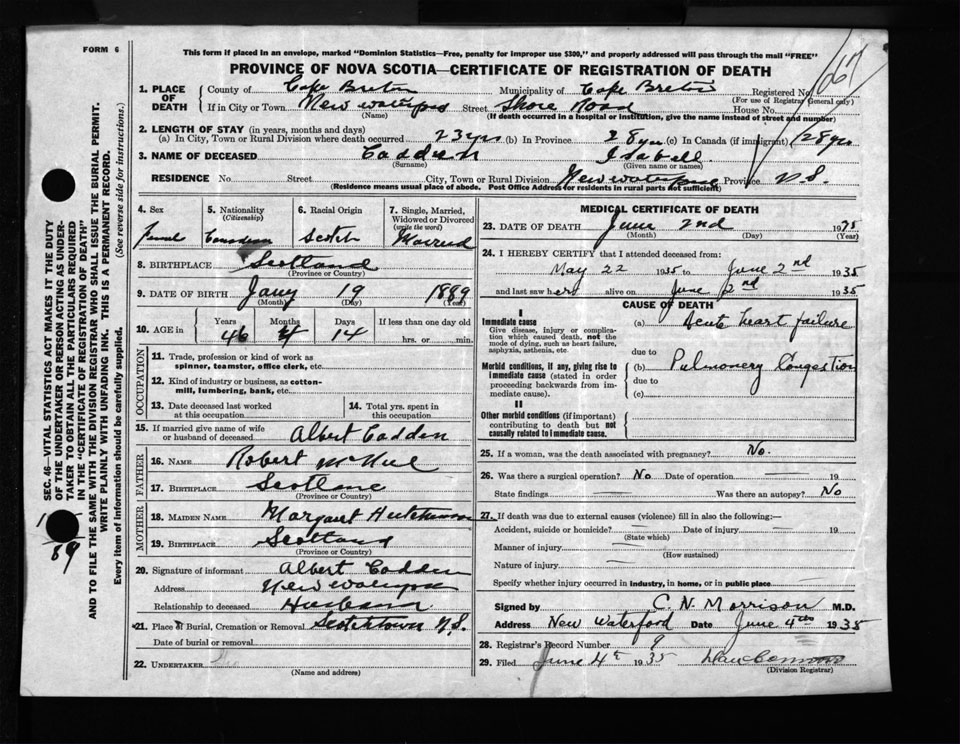 FORM 6
This form if placed in an envelope, marked "Dominion Statistics—Free, penalty for improper use $300," and properly addressed will pass through the mail "FREE"
PROVINCE OF NOVA SCOTIA—CERTIFICATE OF REGISTRATION OF DEATH
167
1. PLACE OF DEATH
County of Cape Breton Municipality of Cape Breton Registered No.
(For use of Registrar General only)
If in City or Town New Waterford Street Shore Road House No.
(Name) (If death occurred in a hospital or institution, give the name instead of street and number)
2. LENGTH OF STAY (in years, months and days)
(a) In City, Town or Rural Division where death occurred 23 yrs (b) In Province 28 yrs (c) In Canada (if immigrant) 28 yrs
3. NAME OF DECEASED Cadden Isabell
(Surname) (Given name or names)
RESIDENCE No. Street City, Town or Rural Division New Waterford Province N.S.
(Residence means usual place of abode. Post Office Address for residents in rural parts not sufficient)
4. Sex 5. Nationality (Citizenship) 6. Racial Origin 7. Single, Married, Widowed or Divorced (write the word)
Canadian Scotch Married
8. BIRTHPLACE Scotland
(Province or Country)
9. DATE OF BIRTH Jany 19 1889
(Month) (Day) (Year)
10. AGE in Years Months Days If less than one day old
46 4 14 hrs. or min.
OCCUPATION
11. Trade, profession or kind of work as spinner, teamster, office clerk, etc.
12. Kind of industry or business, as cotton-mill, lumbering, bank, etc.
13. Date deceased last worked at this occupation
14. Total yrs. spent in this occupation
15. If married give name of wife or husband of deceased Albert Cadden
FATHER
16. NAME Robert
17. BIRTHPLACE Scotland
(Province or Country)
MOTHER
18. MAIDEN NAME Margaret Hutchinson
19. BIRTHPLACE Scotland
(Province or Country)
20. Signature of informant Albert Cadden
Address New Waterford
Relationship to deceased Husband
21. Place of Burial, Cremation or Removal Scotchtown N.S.
Date of burial or removal
22. UNDERTAKER
(Name and address)
MEDICAL CERTIFICATE OF DEATH
23. DATE OF DEATH June 2nd 1935
(Month) (Day) (Year)
24. I HEREBY CERTIFY that I attended deceased from:
May 22 1935 to June 2nd 1935
and last saw her alive on June 2nd 1935
CAUSE OF DEATH
I
Immediate cause
Give disease, injury or complication which caused death, not the mode of dying, such as heart failure, asphyxia, asthenia, etc.
(a) Acute heart failure
due to
Morbid conditions, if any, giving rise to immediate cause (stated in order proceeding backwards from immediate cause).
(b) Pulmonery Congestion
due to
(c)
II
Other morbid conditions (if important) contributing to death but not causally related to immediate cause.
25. If a woman, was the death associated with pregnancy? No.
26. Was there a surgical operation? No Date of operation 19
State findings Was there an autopsy? No
27. If death was due to external causes (violence) fill in also the following:—
Accident, suicide or homicide? Date of injury 19
(State which)
Manner of injury
(How sustained)
Nature of injury
Specify whether injury occurred in industry, in home, or in public place
Signed by C. N. Morrison M.D.
Address New Waterford Date June 4th 1935
28. Registrar's Record Number 9
29. Filed June 4th 1935
(Division Registrar)
SEC. 46—VITAL STATISTICS ACT MAKES IT THE DUTY OF THE UNDERTAKER OR PERSON ACTING AS UNDERTAKER TO OBTAIN ALL THE PARTICULARS REQUIRED IN THE "CERTIFICATE OF REGISTRATION OF DEATH" AND TO FILE THE SAME WITH THE DIVISION REGISTRAR WHO SHALL ISSUE THE BURIAL PERMIT.
WRITE PLAINLY WITH UNFADING INK. THIS IS A PERMANENT RECORD.
Every item of information should be carefully supplied. (See reverse side for instructions.)
89